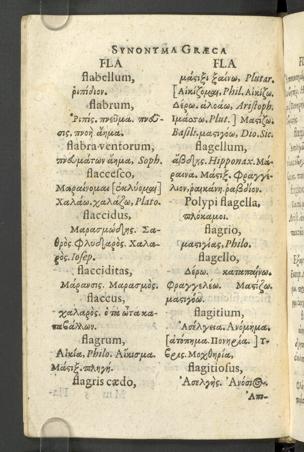 SYNONYMA GRÆCA
FLA
flabellum,
ῥιπίδιον.
flabrum,
Ῥιπίς. πνεῦμα. πνεῦ-
σις, πνοὴ ἄημα.
flabra ventorum,
πνευμάτων ἄημα, Soph.
flaccesco,
Μαραίνομαι [ἐκλύομαι]
Χαλάω, χαλάζω, Plato.
flaccidus,
Μαρασμώδης. Σα-
θρὸς Φλυδαρός. Χαλα-
ρὸς. Iosep.
flacciditas,
Μάρανσις. Μαρασμός.
flaccus,
χαλαρὸς. ὁ τὰ ὦτα κα-
ταβάλλων.
flagrum,
Αἰκία, Philo. Αἴκισμα.
Μάστιξ. πληγή.
flagris cædo,
FLA
μάστιξι ξαίνω, Plutar.
[Αἰκίζομαι, Phil. Αἰκίζω.
Δέρω. ἀλοάω, Aristoph.
Ἱμάσσω, Plut.] Μαστίζω,
Basil. μαστιγόω, Dio. Sic.
flagellum,
Hipponax. Μά-
ραινα. Μάστιξ. Φραγγέ-
λιον, ῥαβδίον.
Polypi flagella,
πλόκαμοι.
flagrio,
μαστιγίας, Philo.
flagello,
Δέρω.
Φραγγελόω. Μαστίζω.
μαστιγόω.
flagitium,
Ἀσέλγεια. Ἀνόμημα.
[ἀτόπημα. Πονηρία.]
Μοχθηρία,
flagitiosus,
Ἀσελγής. Ἀνόσιος.